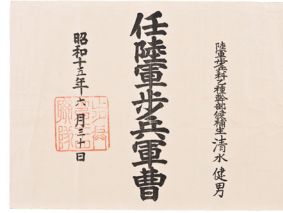 陸軍歩兵科乙種幹部候補生 清水健男
任陸軍歩兵軍曹
昭和十五年六月三十日